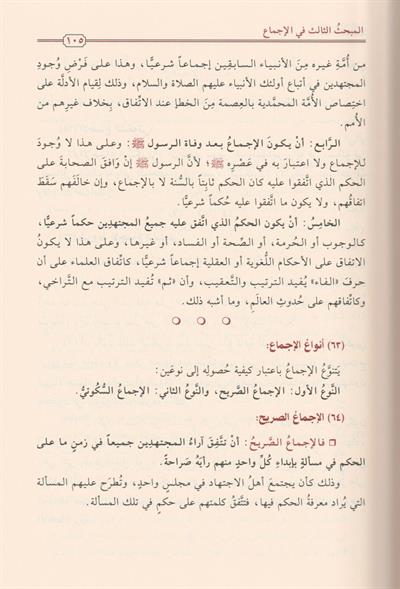 المبحثُ الثالث في الإجماع
١٠٥
من أُمَّةِ غيره مِنَ الأنبياء السابقين إجماعاً شرعيًّا، وهذا على فَرْضِ وُجودِ
المجتهدين في أتباع أولئك الأنبياء عليهم الصلاة والسلام، وذلك لِقيام الأدلَّة على
اختِصاصِ الأُمَّة المحمَّدية بالعِصمة مِنَ الخطإِ عندَ الاتّفاق، بِخلاف غيرِهم من
الأُمم.
الرَّابع: أنْ يكونَ الإجماعُ بعد وفاة الرسول ﷺ: وعلى هذا لا وُجودَ
للإجماع ولا اعتبارَ به في عَصْرِه ﷺ؛ لأنَّ الرسول ﷺ إنْ وافَقَ الصحابةَ على
الحكم الذي اتَّفقوا عليه كان الحكم ثابِتاً بالسُّنة لا بالإجماع، وإن خالَفَهم سَقَطَ
اتفاقُهم، ولا يكون ما اتَّفقوا عليه حُكماً شرعيًّا.
الخامِسُ: أنْ يكون الحكمُ الذي اتَّفق عليه جميعُ المجتهدين حكماً شرعيًّا،
كالوجوب أو الحُرمة، أو الصّحة أو الفساد، أو غيرها، وعلى هذا لا يكونُ
الاتفاق على الأحكام اللُّغوية أو العقلية إجماعاً شرعيًّا، كاتّفاق العلماء على أن
حرفَ «الفاء» يُفيد الترتيبَ والتَّعقيب، وأن «ثم» تُفيد الترتيب مع التَّراخي،
وكاتّفاقهم على حُدوثِ العالَمِ، وما أشبه ذلك.
(٦٣) أنواعُ الإجماع:
يَتنوَّعُ الإجماعُ باعتبار كيفية حُصولِه إلى نوعَين:
النَّوعُ الأول: الإجماعُ الصَّريح، والنَّوعُ الثاني: الإجماعُ السُّكوتيُّ.
(٦٤) الإجماعُ الصريح:
❒ فالإجماعُ الصَّريحُ: أنْ تتَّفِقَ آراءُ المجتهدِين جميعاً في زمنٍ ما على
الحكم في مسألةٍ بإبداءِ كُلِّ واحدٍ منهم رأيَهُ صَراحةً.
وذلك كأن يجتمعَ أهلُ الاجتهاد في مجلس واحدٍ، وتُطرَح عليهم المسألة
التي يُراد معرفةُ الحكم فيها، فتتَّفقُ كلمتهم على حكمٍ في تلك المسألة.